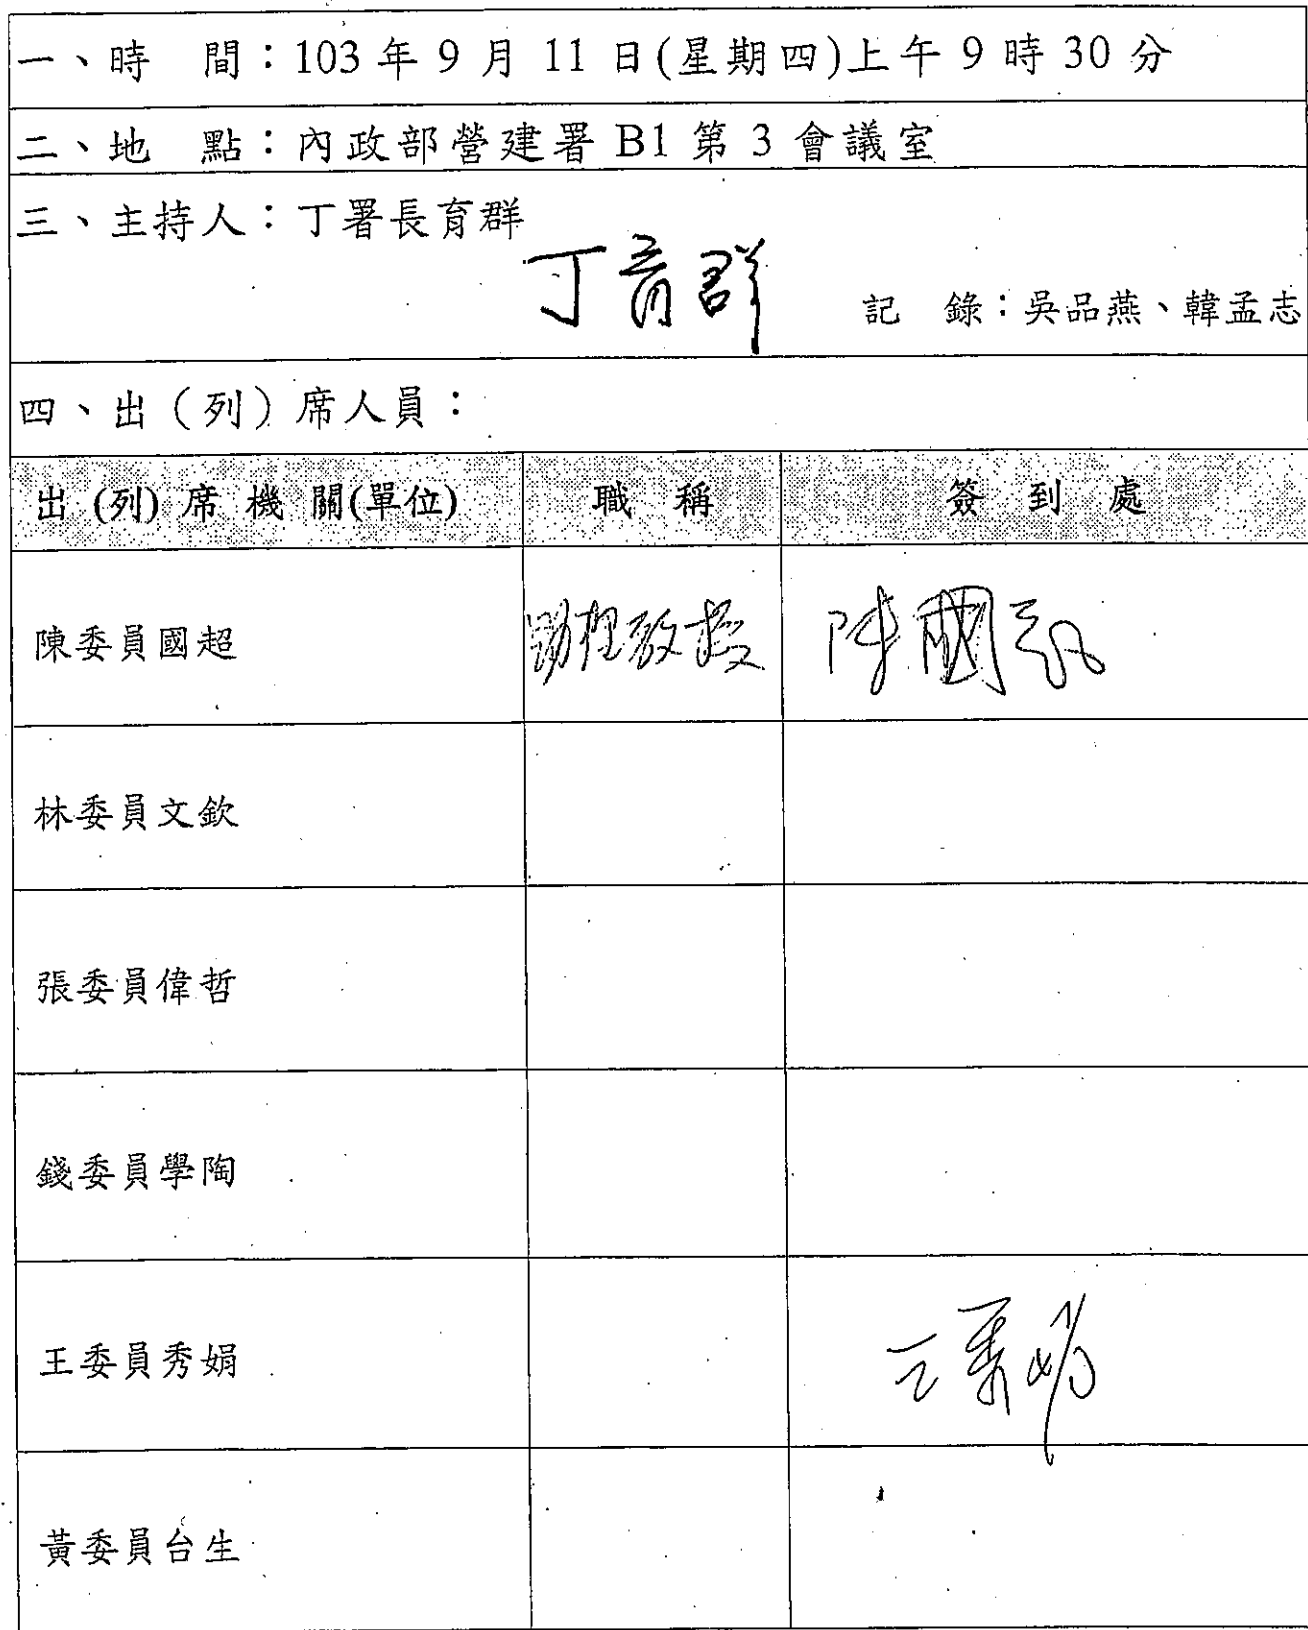 一、時　間：103 年 9 月 11 日(星期四)上午 9 時 30 分
二、地　點：內政部營建署 B1 第 3 會議室
三、主持人：丁署長育群
丁育群
記　錄：吳品燕、韓孟志
四、出（列）席人員：
出 (列) 席 機 關(單位)　職　稱　簽　到　處
陳委員國超　助理教授　陳國超
林委員文欽
張委員偉哲
錢委員學陶
王委員秀娟　王秀娟
黃委員台生